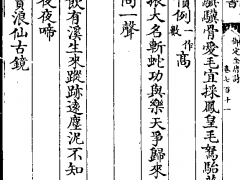 書
御定全唐詩
卷七百十一
驥骨愛毛宜採鳳皇毛駑駘
價例一作數高
振大名斬蛇功與樂天爭歸來
同一聲
飲有溪生來蹤跡遠塵泥不知
夜夜啼
賈浪仙古鏡